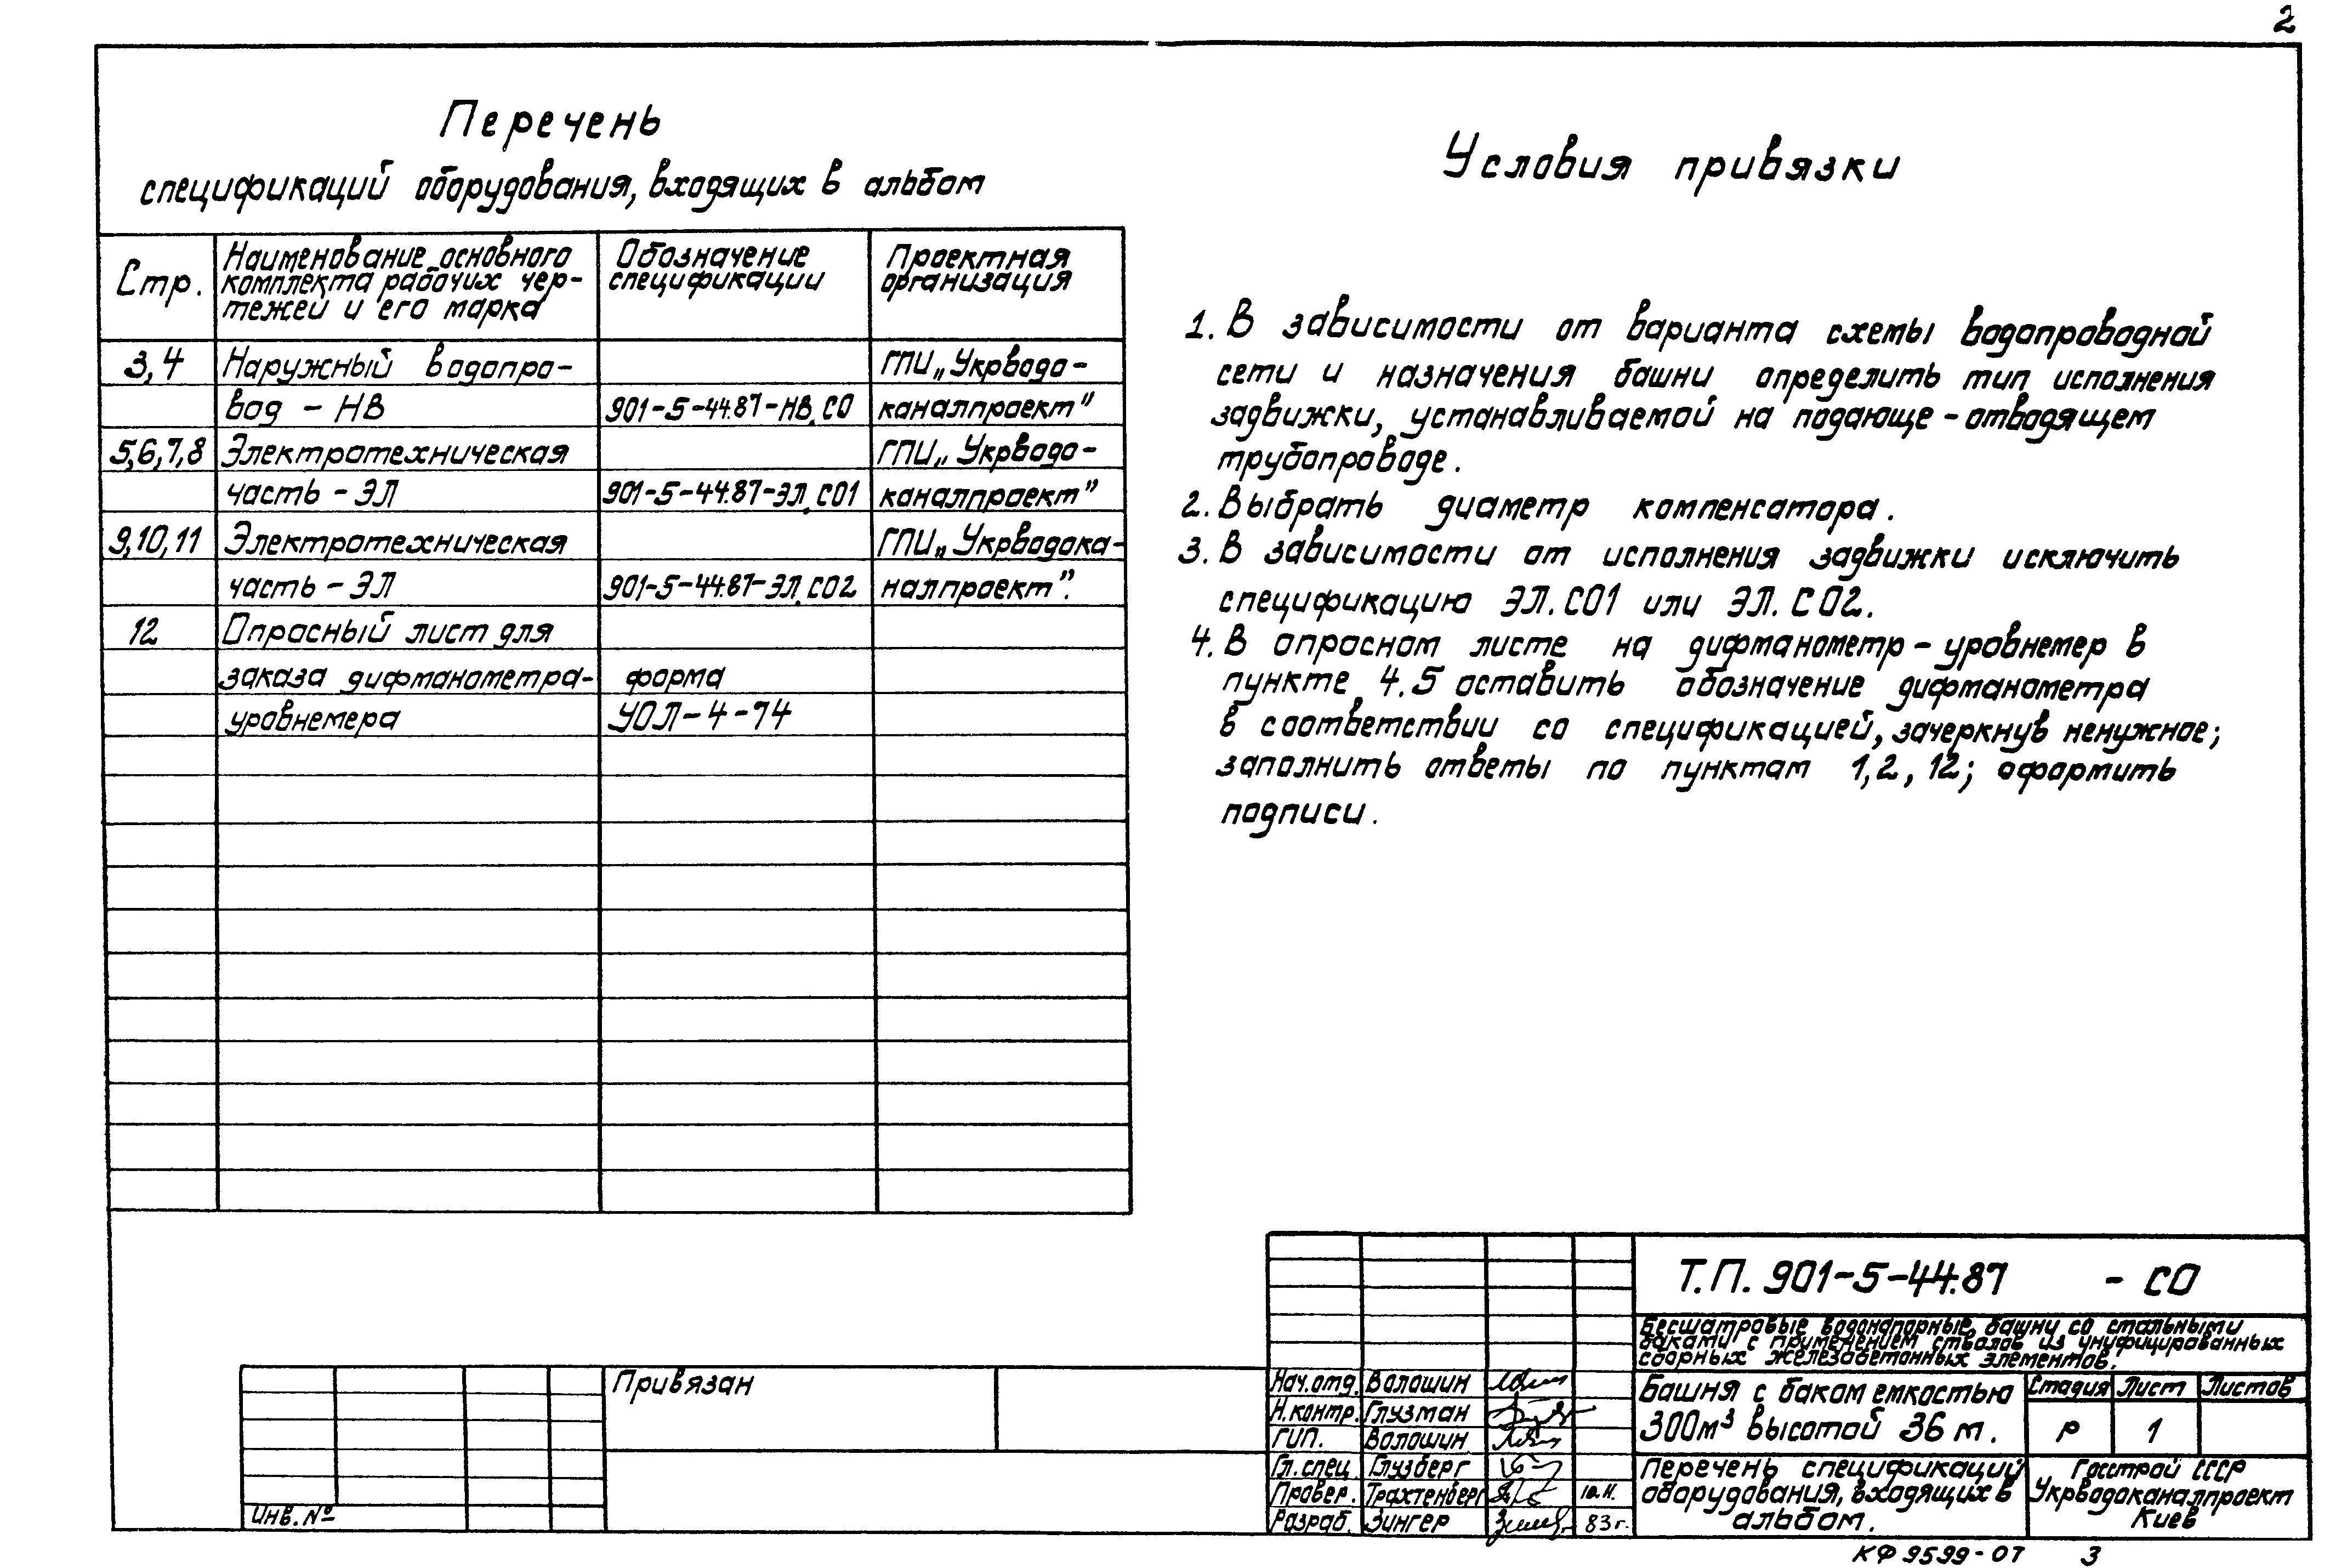 2
Перечень
спецификаций оборудования, входящих в альбом
Стр.
Наименование основного
комплекта рабочих чер-
тежей и его марка
Обозначение
спецификации
Проектная
организация
3,4 Наружный водопро- ГПИ „Укрводо-
вод - НВ 901-5-44.87-НВ.СО каналпроект"
5,6,7,8 Электротехническая ГПИ „Укрводо-
часть - ЭЛ 901-5-44.87-ЭЛ.СО1 каналпроект"
9,10,11 Электротехническая ГПИ „Укрводока-
часть - ЭЛ 901-5-44.87-ЭЛ.СО2 налпроект".
12 Опросный лист для
заказа дифманометра- форма
уровнемера УОЛ-4-74
Условия привязки
1. В зависимости от варианта схемы водопроводной
сети и назначения башни определить тип исполнения
задвижки, устанавливаемой на подающе-отводящем
трубопроводе.
2. Выбрать диаметр компенсатора.
3. В зависимости от исполнения задвижки исключить
спецификацию ЭЛ.СО1 или ЭЛ.СО2.
4. В опросном листе на дифманометр-уровнемер в
пункте 4.5 оставить обозначение дифманометра
в соответствии со спецификацией, зачеркнув ненужное;
заполнить ответы по пунктам 1,2,12; оформить
подписи.
Привязан
Инв. №
Т.П. 901-5-44.87 - СО
Бесшатровые водонапорные башни со стальными
баками с применением стволов из унифицированных
сборных железобетонных элементов.
Нач.отд. Волошин
Н.контр. Глузман
ГИП. Волошин
Гл.спец. Глузберг
Провер. Трахтенберг 10.11.
Разраб. Зингер 83г.
Башня с баком емкостью
300м³ высотой 36 м.
Стадия Лист Листов
Р 1
Перечень спецификаций
оборудования, входящих в
альбом.
Госстрой СССР
Укрводоканалпроект
Киев
КФ 9599-07 3